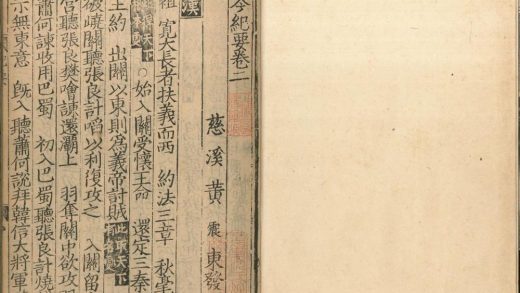 今紀要卷二
慈溪黃震東發
漢
祖 寬大長者扶義而西 約法三章 秋毫
取天下 ○始入關受懷王命 還定三秦
王約 出關以東則為義帝討賊 此取天下
破嶢關聽張良計啗以利復攻之 入關留
宮聽張良樊噲諫還灞上 羽奪關中欲攻羽
蕭何諫收用巴蜀 初入巴蜀聽張良計燒
示無東意 既入聽蕭何說拜韓信大將軍